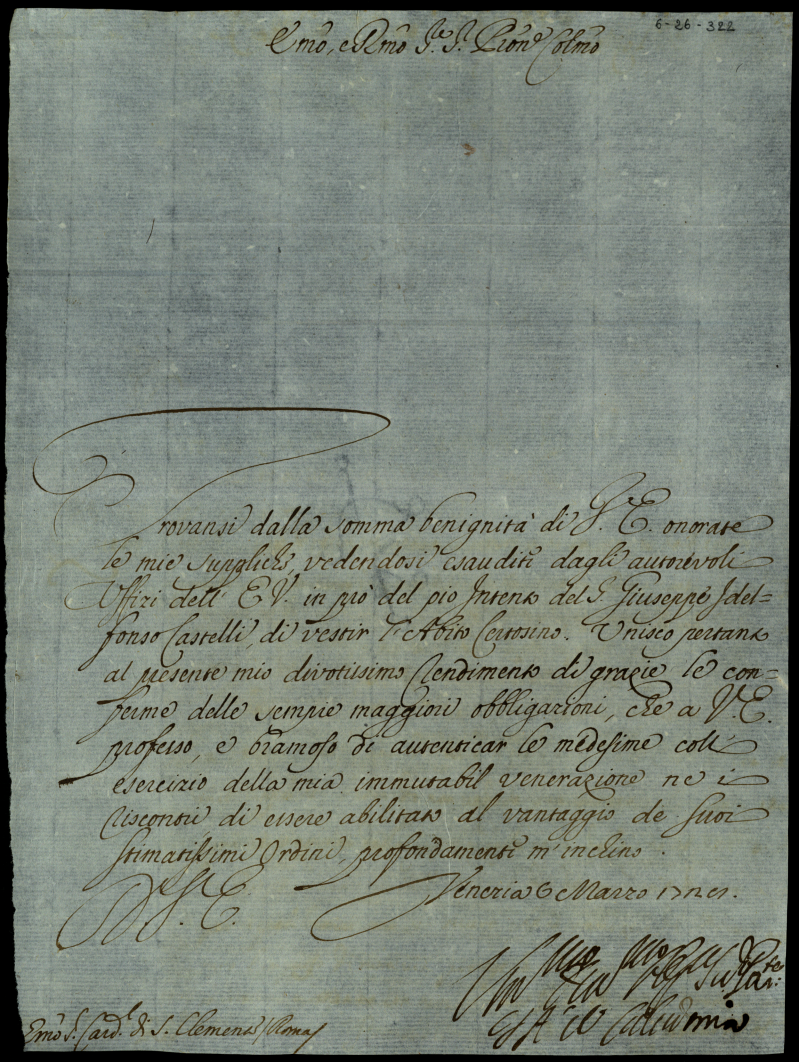 6-26-322
Emo, e Rmo Sre. Sr. Pron.e Colmo
Trovansi dalla somma benignità di V. E. onorate
le mie suppliche, vedendosi esauditi dagli autorevoli
Uffizi dell' E V. in prò del pio Intento del S. Giuseppe Idel=
fonso Castelli, di vestir l'Abito Certosino. Unisco pertanto
al presente mio divotissimo rendimento di grazie le con=
ferme delle sempre maggiori obbligazioni, che a V. E.
professo, e bramoso di autenticar le medesime coll'
esercizio della mia immutabil venerazione ne i
riscontri di essere abilitato al vantaggio de Suoi
stimatissimi Ordini, profondamente m'inchino.
D V. E.
Venezia 6 Marzo
Emo S. Card.l di S. Clemente / Roma /